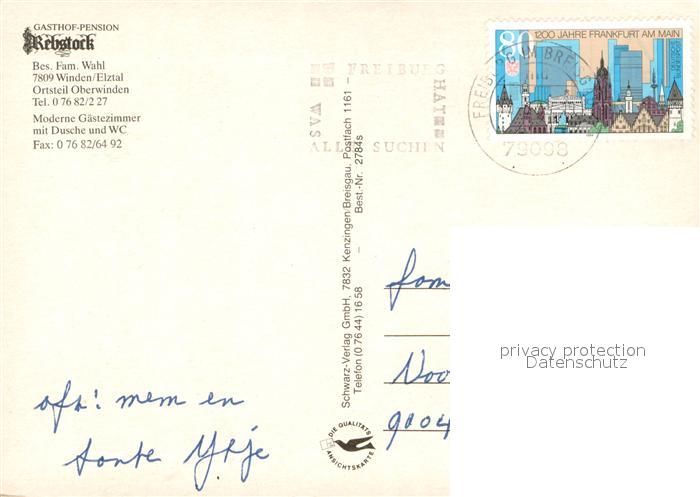 GASTHOF-PENSION
Rebstock
Bes. Fam. Wahl
7809 Winden/Elztal
Ortsteil Oberwinden
Tel. 0 76 82/2 27
Moderne Gästezimmer
mit Dusche und WC
Fax: 0 76 82/64 92
FREIBURG
HAT
WAS
ALLE SUCHEN
80
1200 JAHRE FRANKFURT AM MAIN
FREIBURG IM BREISGAU
79098
Schwarz-Verlag GmbH, 7832 Kenzingen/Breisgau, Postfach 1161 –
Telefon (0 76 44) 16 58 – Best.-Nr. 2784s
DIE QUALITÄTS
ANSICHTSKARTE
fam
9004
mem en
tante Ytje
privacy protection
Datenschutz